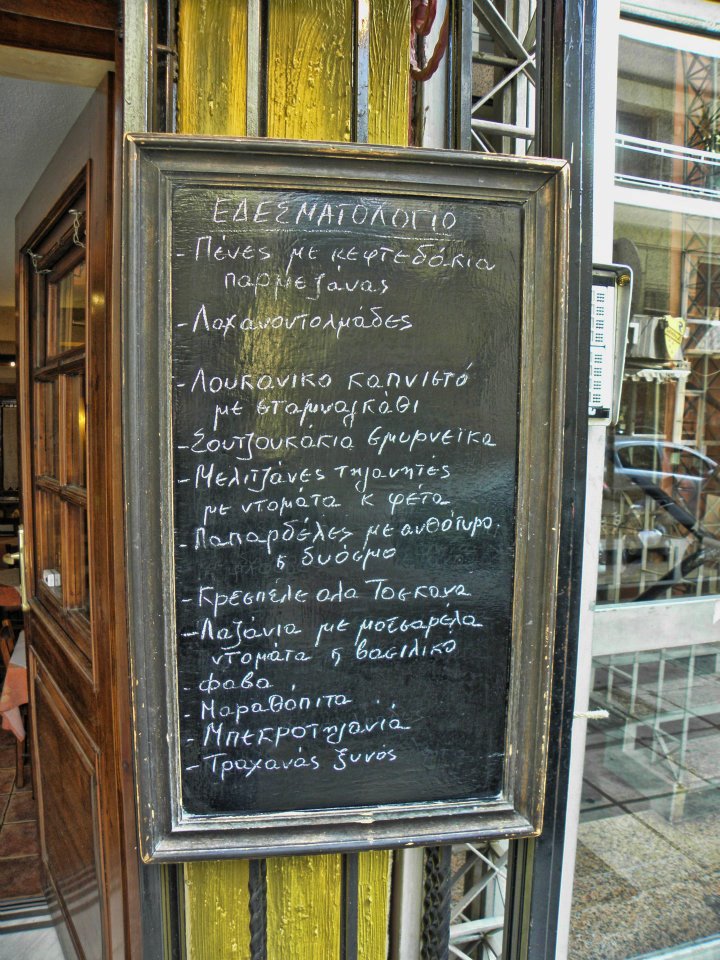 ΕΔΕΣΜΑΤΟΛΟΓΙΟ
- Πένες με κεφτεδάκια
παρμεζάνας
- Λαχανοντολμάδες
- Λουκάνικο καπνιστό
με σταμναγκάθι
- Σουτζουκάκια σμυρνεϊκα
- Μελιτζάνες τηγανητές
με ντομάτα κ φέτα
- Παπαρδέλες με ανθότυρο
κ δυόσμο
- Κρεσπέλε αλα Τοσκανα
- Λαζάνια με μοτσαρέλα
ντομάτα κ βασιλικο
- φαβα
- Μαραθόπιτα
- ΜΠΕΚΡΟΤηγανιά
- Τραχανάς ξυνός